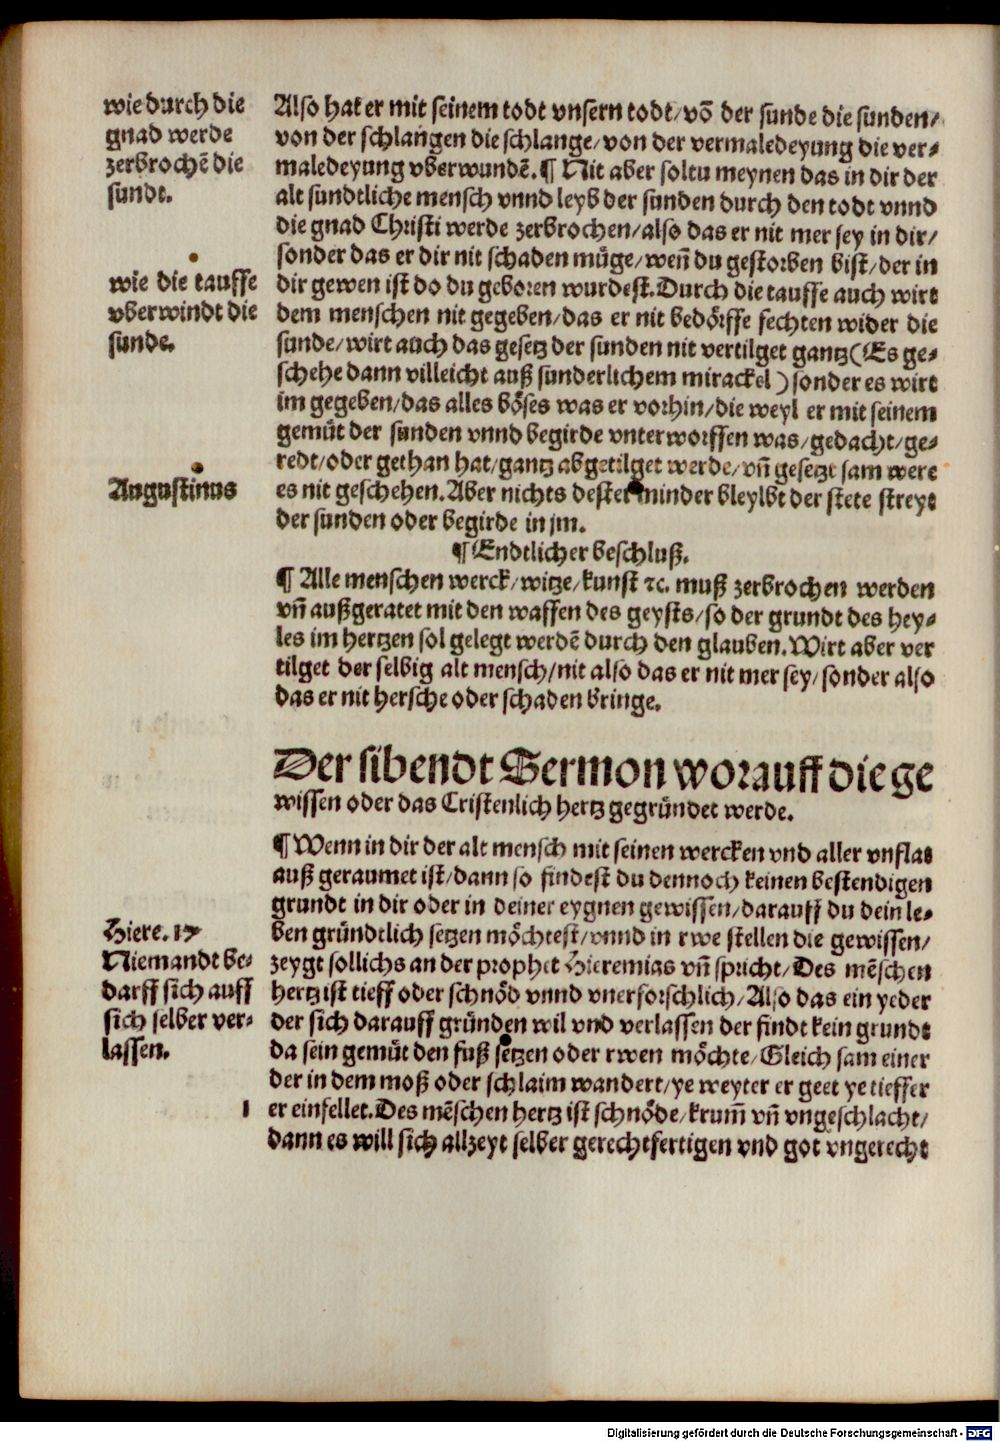 wie durch die
gnad werde
zerbrochē die
sundt.
wie die tauffe
vberwindt die
sunde.
Augustinus
Also hat er mit seinem todt vnsern todt/ vō der sunde die sunden/
von der schlangen die schlange/ von der vermaledeyung die ver-
maledeyung vberwundē. ¶ Nit aber soltu meynen das in dir der
alt sundtliche mensch vnnd leyb der sunden durch den todt vnnd
die gnad Christi werde zerbrochen/ also das er nit mer sey in dir/
sonder das er dir nit schaden müge/ weñ du gestorben bist/ der in
dir gewen ist do du geboren wurdest. Durch die tauffe auch wirt
dem menschen nit gegeben/ das er nit bedörffe fechten wider die
sunde/ wirt auch das gesetz der sunden nit vertilget gantz (Es ge-
schehe dann villeicht auß sunderlichem mirackel) sonder es wirt
im gegeben/ das alles böses was er vorhin/ die weyl er mit seinem
gemüt der sunden vnnd begirde vnterworffen was/ gedacht/ ge-
redt/ oder gethan hat/ gantz abgetilget werde/ vñ gesetzt sam were
es nit geschehen. Aber nichts dester minder bleylbt der stete streyt
der sunden oder begirde in jm.
¶ Endtlicher beschluß.
¶ Alle menschen werck/ witze/ kunst ꝛc. muß zerbrochen werden
vñ außgeratet mit den waffen des geysts/ so der grundt des hey-
les im hertzen sol gelegt werdē durch den glauben. Wirt aber ver
tilget der selbig alt mensch/ nit also das er nit mer sey/ sonder also
das er nit hersche oder schaden bringe.
Der sibendt Sermon worauff die ge
wissen oder das Cristenlich hertz gegründet werde.
¶ Wenn in dir der alt mensch mit seinen wercken vnd aller vnflat
auß geraumet ist/ dann so findest du dennoch keinen bestendigen
grundt in dir oder in deiner eygnen gewissen/ darauff du dein le-
ben gründtlich setzen möchtest/ vnnd in rwe stellen die gewissen/
zeygt sollichs an der prophet Hieremias vñ spricht/ Des mēschen
hertz ist tieff oder schnöd vnnd vnerforschlich/ Also das ein yeder
der sich darauff gründen wil vnd verlassen der findt kein grundt
da sein gemüt den fuß setzen oder rwen möchte/ Gleich sam einer
der in dem moß oder schlaim wandert/ ye weyter er geet ye tieffer
er einfellet. Des mēschen hertz ist schnöde/ krum̄ vñ vngeschlacht/
dann es will sich allzeyt selber gerechtfertigen vnd got vngerecht
Hiere. 17
Niemandt be-
darff sich auff
sich selber ver-
lassen.
1
Digitalisierung gefördert durch die Deutsche Forschungsgemeinschaft - DFG